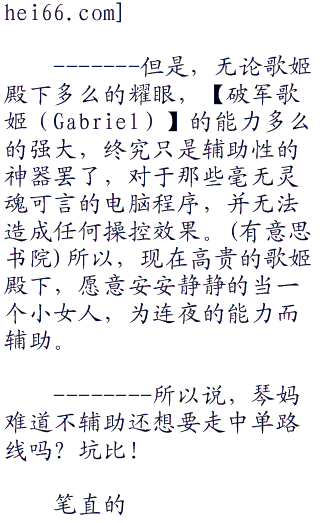 hei66.com]
-------但是，无论歌姬
殿下多么的耀眼，【破军歌
姬（Gabriel）】的能力多么
的强大，终究只是辅助性的
神器罢了，对于那些毫无灵
魂可言的电脑程序，并无法
造成任何操控效果。(有意思
书院)所以，现在高贵的歌姬
殿下，愿意安安静静的当一
个小女人，为连夜的能力而
辅助。
--------所以说，琴妈
难道不辅助还想要走中单路
线吗？坑比！
笔直的